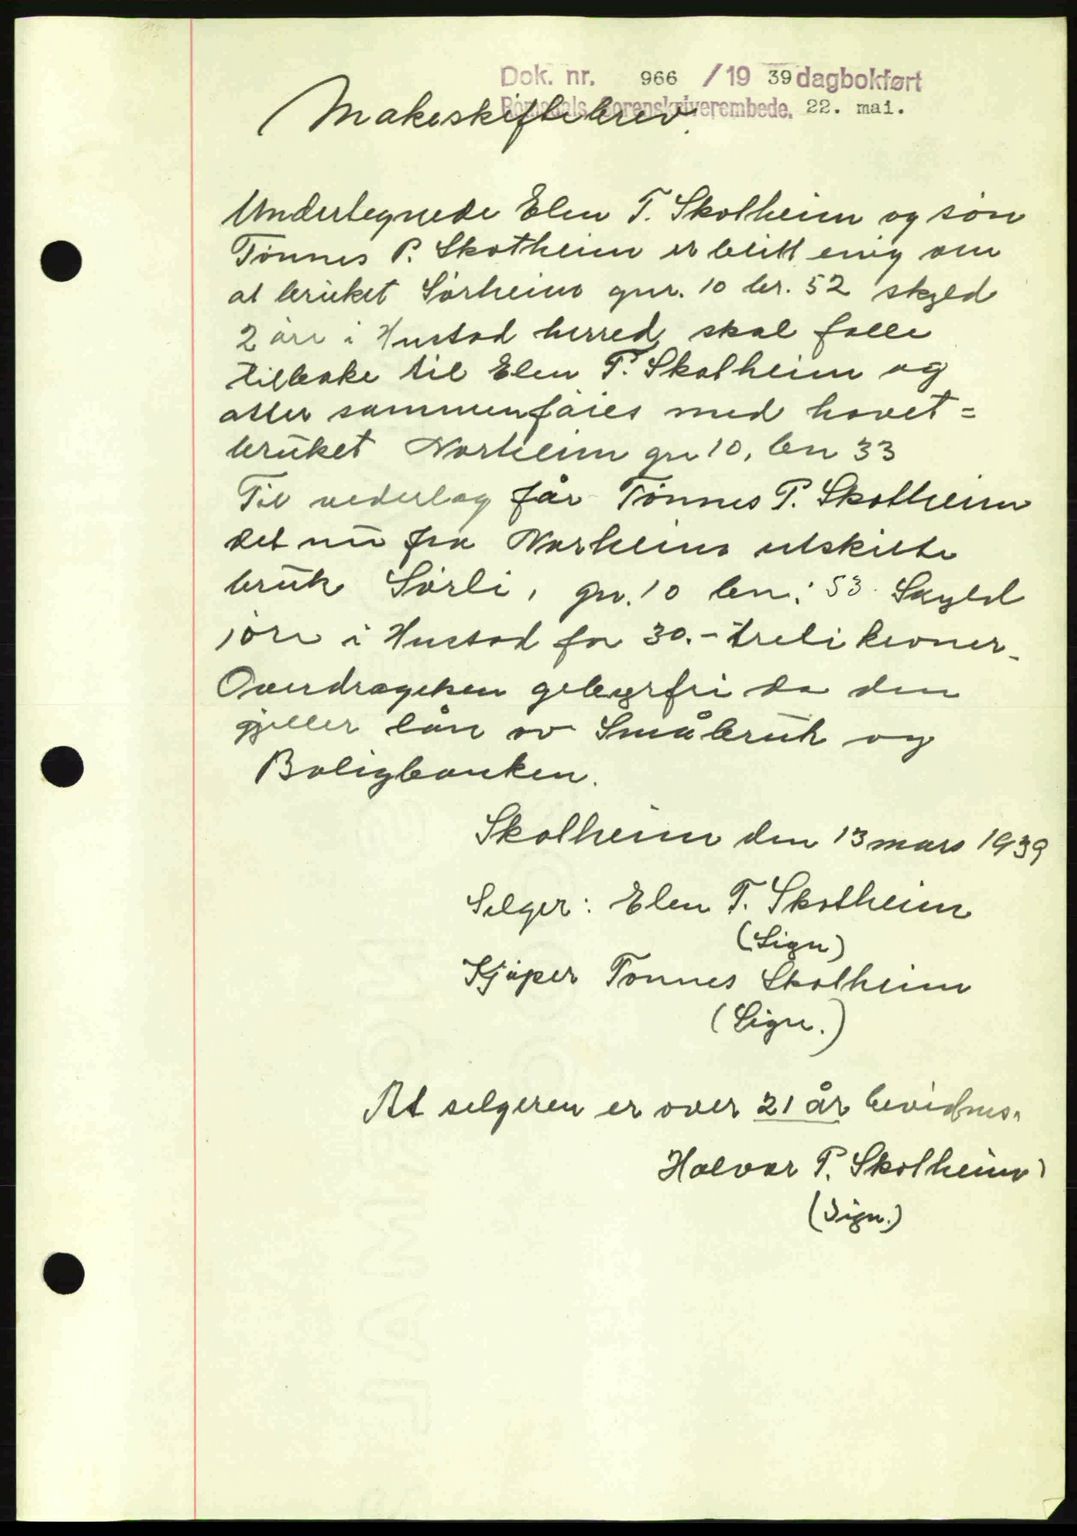 Dok. nr. 966 /19 39 dagbokført
Romsdals sorenskriverembede. 22. mai.
Makeskiftebrev.
Undertegnede Elen T. Skotheim og søn
Tønnes P. Skotheim er blitt enig om
at bruket Sørheim gnr. 10 br. 52 skyld
2 øre i Hustad herred skal falle
tilbake til Elen T. Skotheim og
atter sammenføies med hovet=
bruket Norheim gn 10, bn 33
Til vederlag får Tønnes P. Skotheim
det nu fra Norheim utskilte
bruk Sørli, gn. 10 bn. 53 Skyld
1 øre i Hustad for 30.- treti kroner.
Overdragelsen gebyrfri da den
gjeller lån av Småbruk og
Boligbanken.
Skotheim den 13 mars 1939
Selger: Elen T. Skotheim
(Sign)
Kjøper Tønnes Skotheim
(Sign.)
At selgeren er over 21 år bevidnes.
Halvor P. Skotheim
(Sign.)